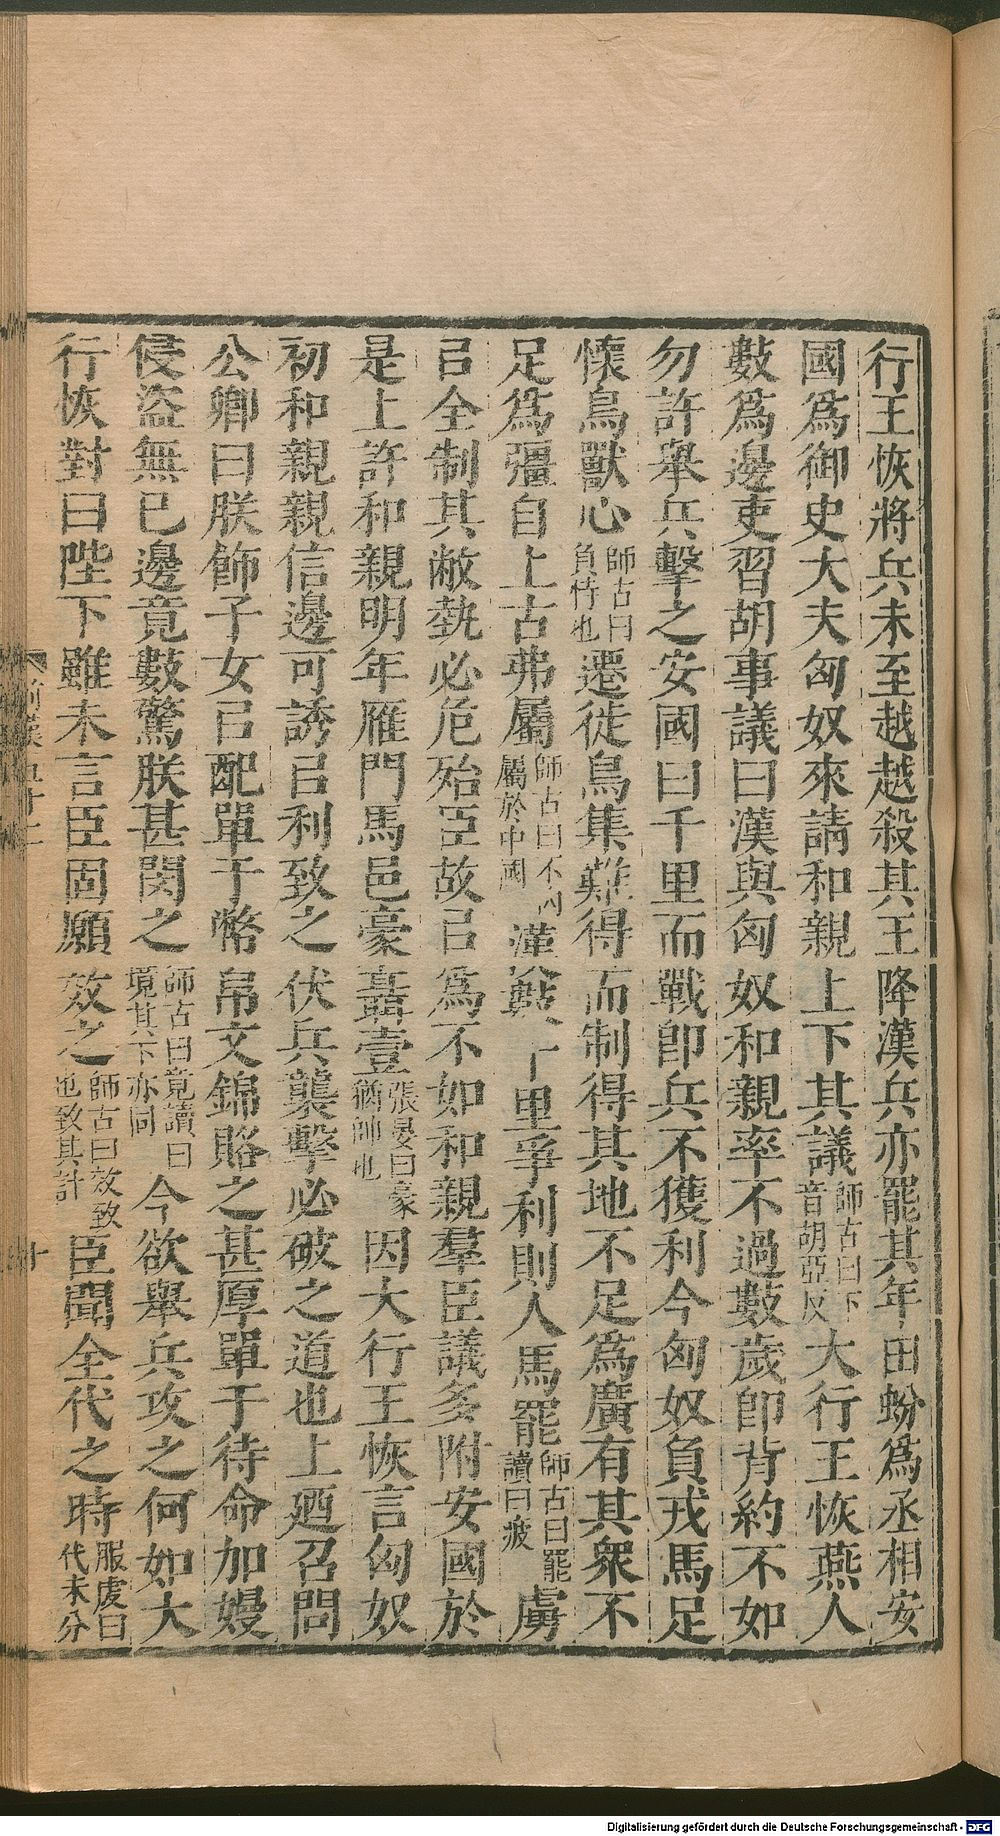 行王恢將兵未至越越殺其王降漢兵亦罷其年田蚡爲丞相安
國爲御史大夫匈奴來請和親上下其議師古曰下音胡亞反大行王恢燕人
數爲邊吏習胡事議曰漢與匈奴和親率不過數歲卽背約不如
勿許舉兵擊之安國曰千里而戰卽兵不獲利今匈奴負戎馬足
懷鳥獸心師古曰負恃也遷徙鳥集難得而制得其地不足爲廣有其衆不
足爲彊自上古弗屬師古曰不內屬於中國漢數千里爭利則人馬罷師古曰罷讀曰疲虜
㠯全制其敝埶必危殆臣故㠯爲不如和親羣臣議多附安國於
是上許和親明年雁門馬邑豪聶壹張晏曰豪猶帥也因大行王恢言匈奴
初和親親信邊可誘㠯利致之伏兵襲擊必破之道也上廼召問
公卿曰朕飾子女㠯配單于幣帛文錦賂之甚厚單于待命加嫚
侵盜無已邊竟數驚朕甚閔之師古曰竟讀曰境其下亦同今欲舉兵攻之何如大
行恢對曰陛下雖未言臣固願效之師古曰效致也致其計臣聞全代之時服虔曰代未分
前漢五十二
十
Digitalisierung gefördert durch die Deutsche Forschungsgemeinschaft - DFG